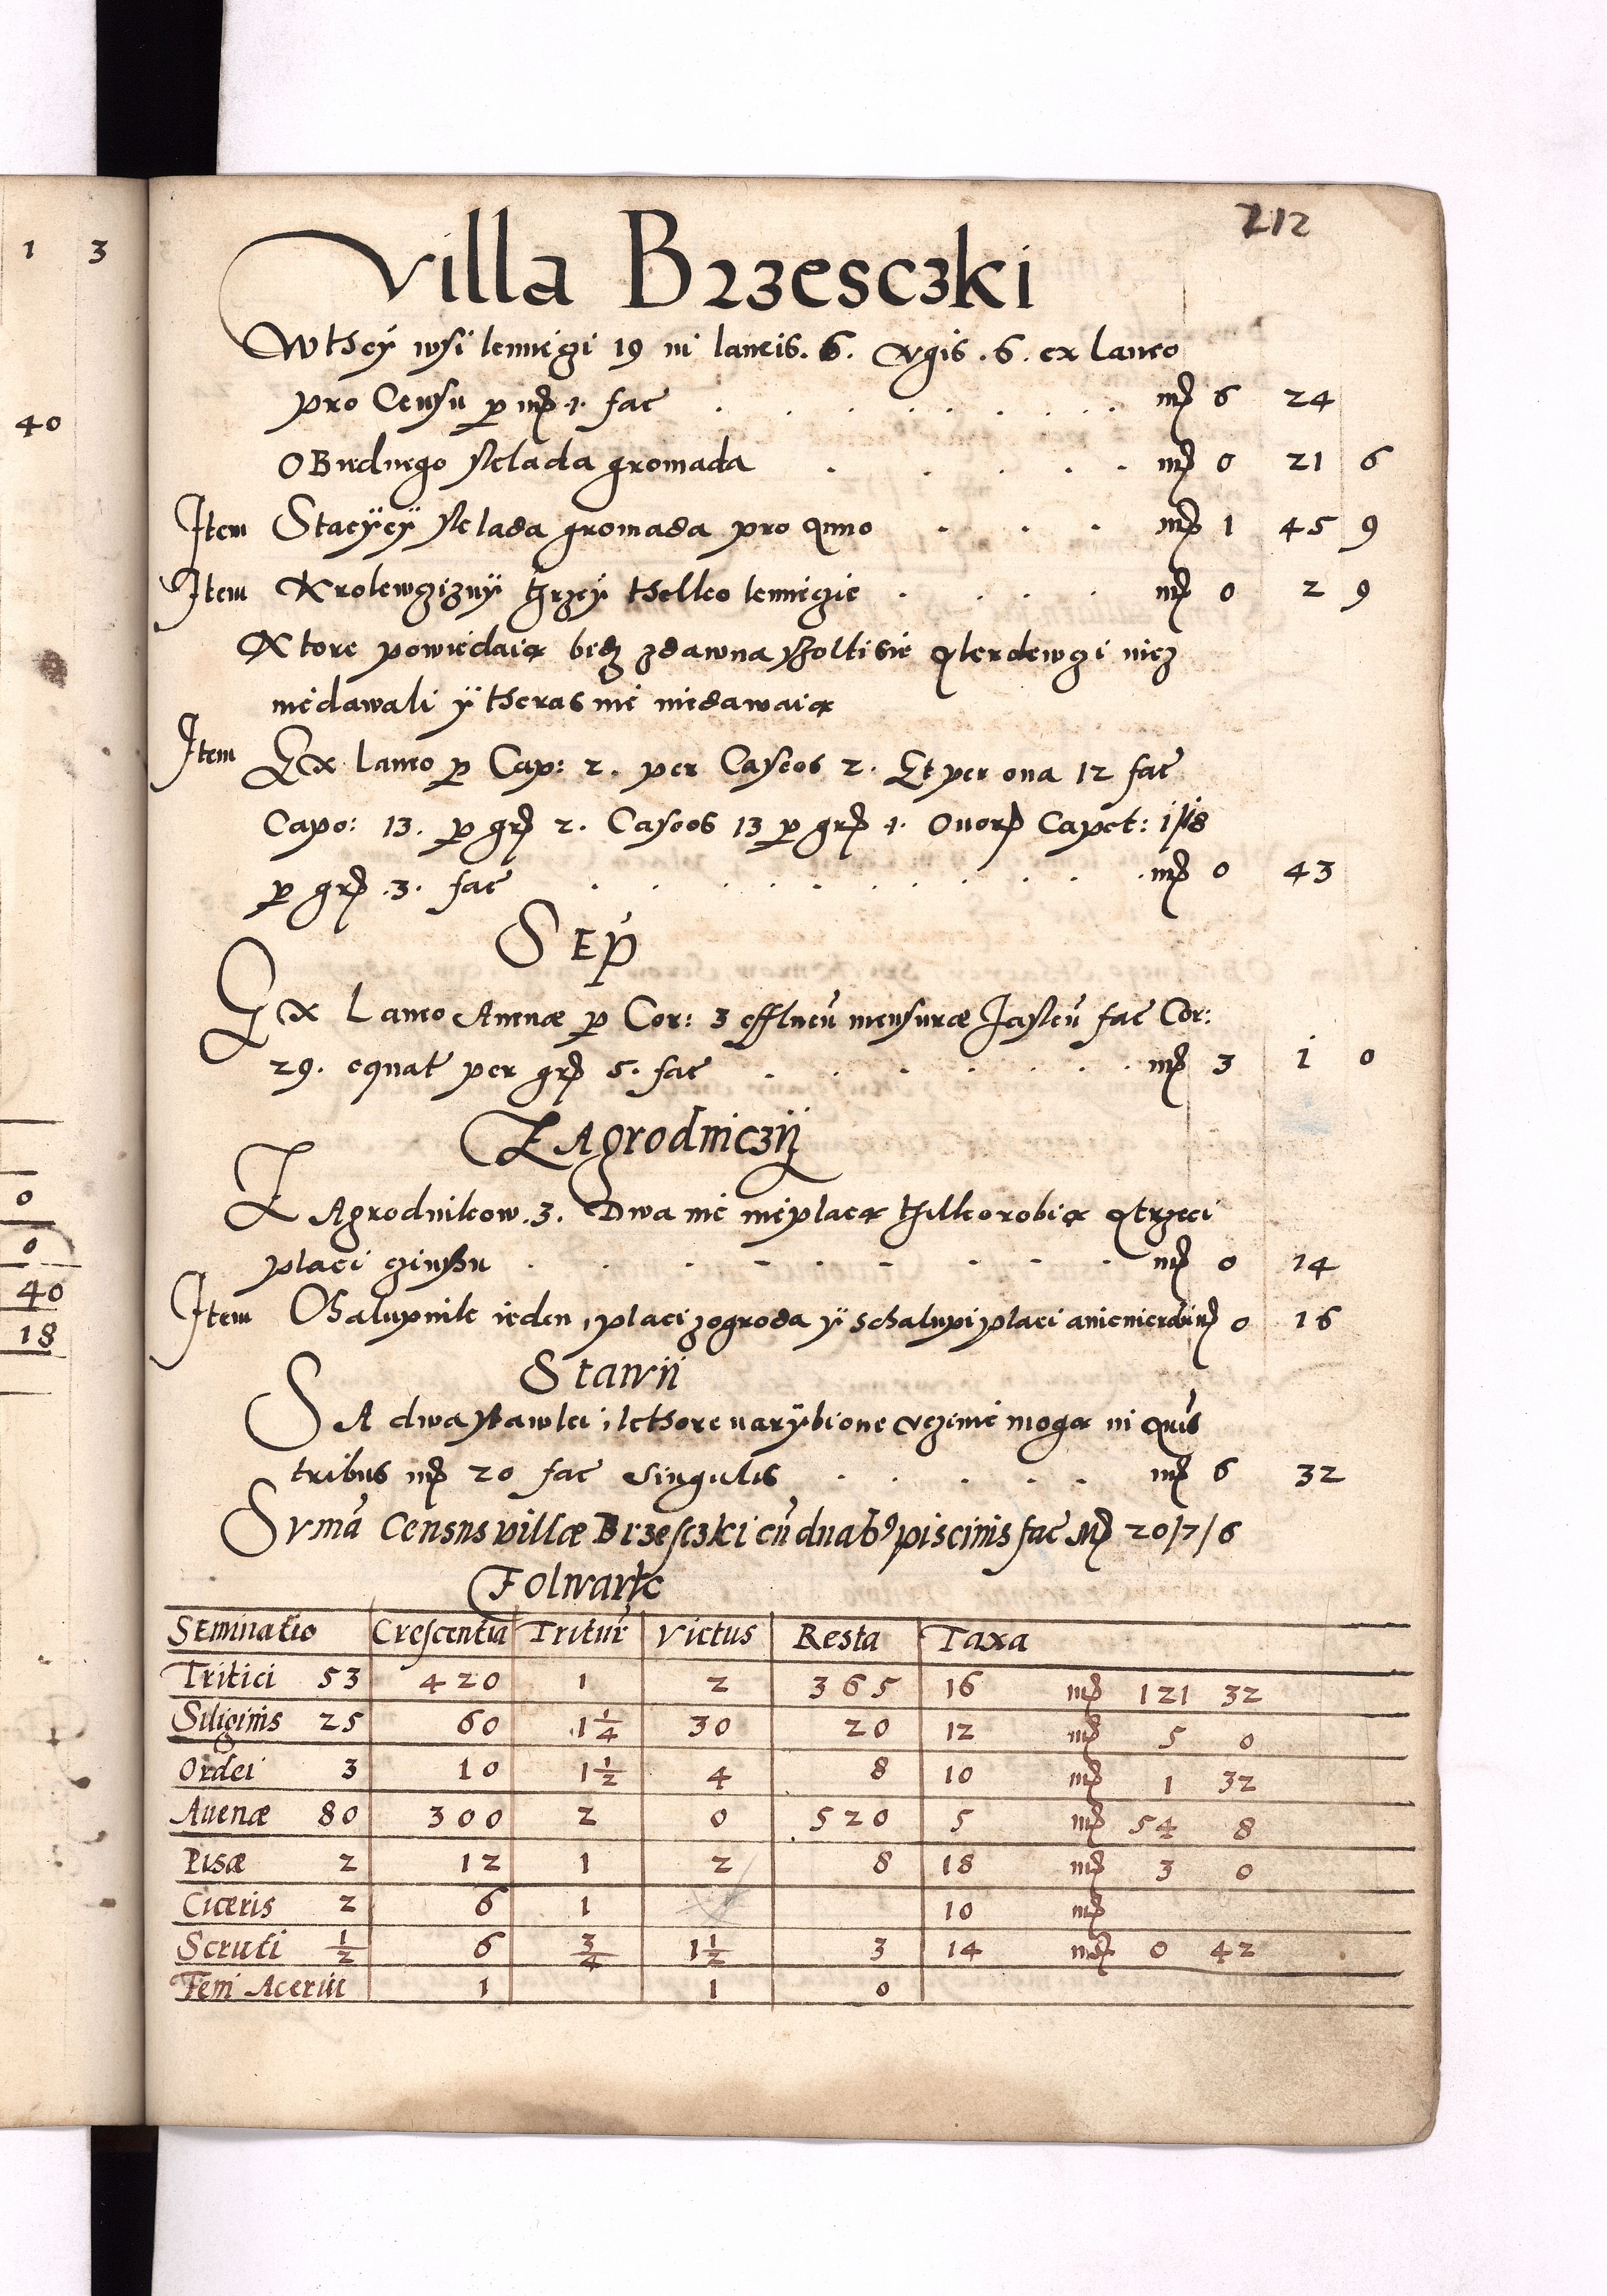 1 3
40
0
0
40
18
212
Villa Brzesczki
W thеӱ wsi kmieczi 19 in laneis . 6 . Vgis . 6 . ex laneo
pro Censu p mr 1 . fac . . . . . . . . mr 6 24
OBiednego sklada gromada . . . . . mr 0 21 6
Item Stacÿeÿ sklada gromada pro Anno . . . mr 1 45 9
Item Krolewczizny thrzeÿ thelko kmieczie . . . . mr 0 2 9
Ktore powiedaią bedz zdawna scholtisie A kerdewgi niez
niedawali ÿ theras nie niedawaią
Item Ex laneo p Cap: 2 . per Caseos 2 . Et per oua 12 fac
Capo: 13 . p gr 2 . Caseos 13 p gr 1 . Ouor Capet:
p gr . 3 . fac . . . . . . . . . mr 0 43
SEP
Ex Laneo Auenæ p Cor: 3 mensuræ fac Cor:
29 . equat per gr 5 . fac . . . . . . mr 3 1 0
ZAgrodniczÿ
ZAgrodnikow . 3 . Dwa nie nieplacą thilko robią A trzeci
placi czinssu . . . . . . . . . mr 0 14
Item Chalupnik ieden , placi zogroda ÿ schalupi placi anienierobi mr 0 16
Stawii
SA dwa stawki , kthore narÿbione bydz moga in Anis
tribus mr 20 fac singulis . . . . . mr 6 32
Sumā Census villæ Brzesczki cū duab9 piscinis fac Mr 20/7/6
Folwark
Seminatio Crescentia Tritur Victus Resta Taxa
Tritici 53 420 1 2 365 16 mr 121 32
Siliginis 25 60 1 1/4 30 20 12 mr 5 0
Ordei 3 10 1 1/2 4 8 10 mr 1 32
Auenæ 80 300 2 0 520 5 mr 54 8
Pisæ 2 12 1 2 8 18 mr 3 0
Ciceris 2 6 1 10 mr
Scruti 1/2 6 3/4 1 1/2 3 14 mr 0 42
Feni Acerui 1 1 0